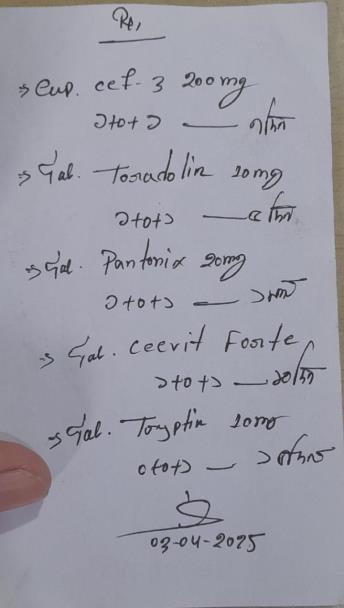 Rx,
⇒ Cap. cef-3 200mg
১+০+১ — ৭দিন
⇒ Tab. Toradolin 10mg
১+০+১ — ৫ দিন
⇒ Tab. Pantonix 20mg
১+০+১ — ১মাস
⇒ Tab. Ceevit Forte
১+০+১ — ২০দিন
⇒ Tab. Tryptin 10mg
০+০+১ — ১ মাস
03-04-2025